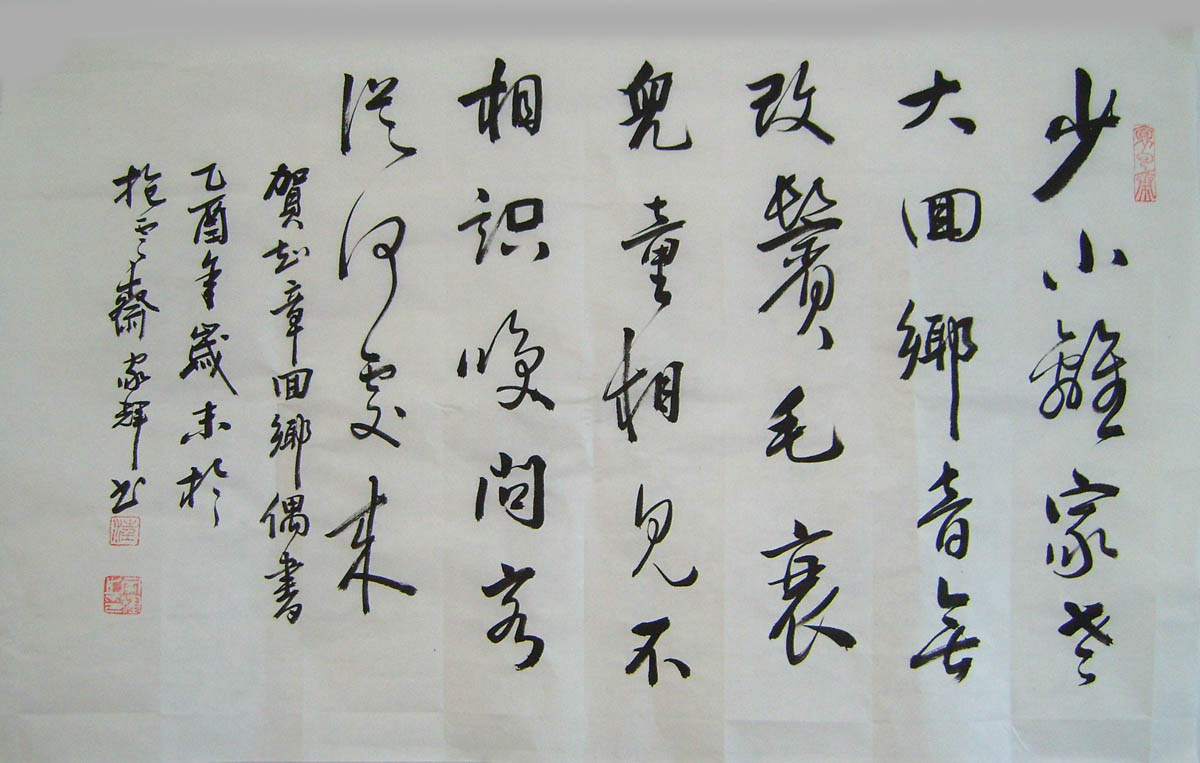 少小離家老
大回鄉音無
改鬢毛衰
兒童相見不
相識咲問客
從何處來
賀知章回鄉偶書
乙酉年歲末於
抱雲齋家輝書